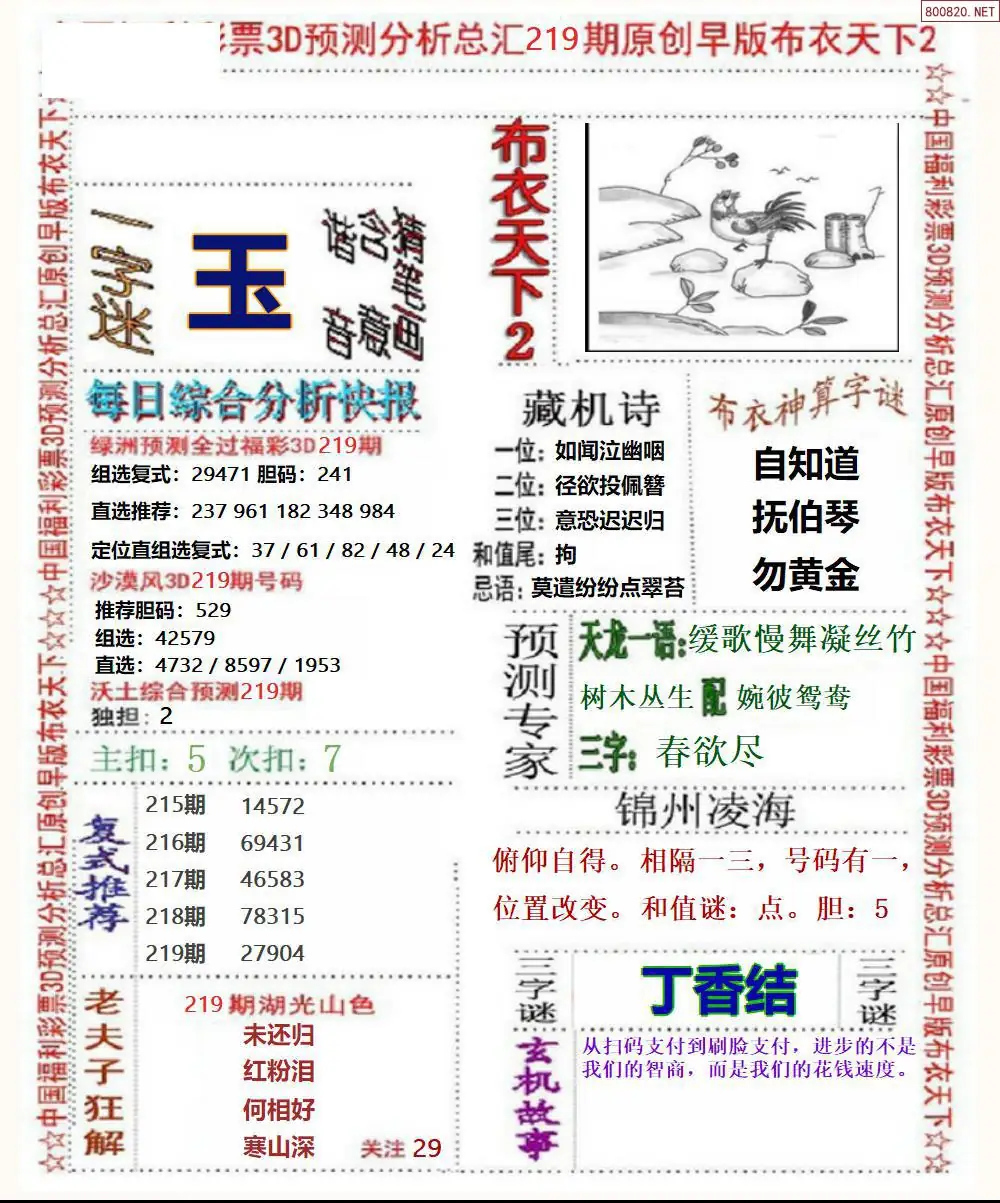 800820.NET
彩票3D预测分析总汇219期原创早版布衣天下2
一字迷
玉
猜笔画
含意
指音
每日综合分析快报
绿洲预测全过福彩3D219期
组选复式：29471 胆码：241
直选推荐：237 961 182 348 984
定位直组选复式：37 / 61 / 82 / 48 / 24
沙漠风3D219期号码
推荐胆码：529
组选：42579
直选：4732 / 8597 / 1953
沃土综合预测219期
独担：2
主扣：5 次扣：7
复式推荐
215期 14572
216期 69431
217期 46583
218期 78315
219期 27904
老夫子狂解
219期湖光山色
未还归
红粉泪
何相好
寒山深
关注 29
布衣天下2
藏机诗
一位：如闻泣幽咽
二位：径欲投佩簪
三位：意恐迟迟归
和值尾：拘
忌语：莫遣纷纷点翠苔
布衣神算字谜
自知道
抚伯琴
勿黄金
预测专家
天龙一语：缓歌慢舞凝丝竹
树木丛生 配 婉彼鸳鸯
三字：春欲尽
锦州凌海
俯仰自得。相隔一三，号码有一，
位置改变。和值谜：点。胆：5
三字谜
丁香结
三字谜
玄机故事
从扫码支付到刷脸支付，进步的不是
我们的智商，而是我们的花钱速度。
☆☆中国福利彩票3D预测分析总汇原创早版布衣天下☆☆☆☆中国福利彩票3D预测分析总汇原创早版布衣天下☆
☆☆中国福利彩票3D预测分析总汇原创早版布衣天下☆☆☆☆中国福利彩票3D预测分析总汇原创早版布衣天下☆☆